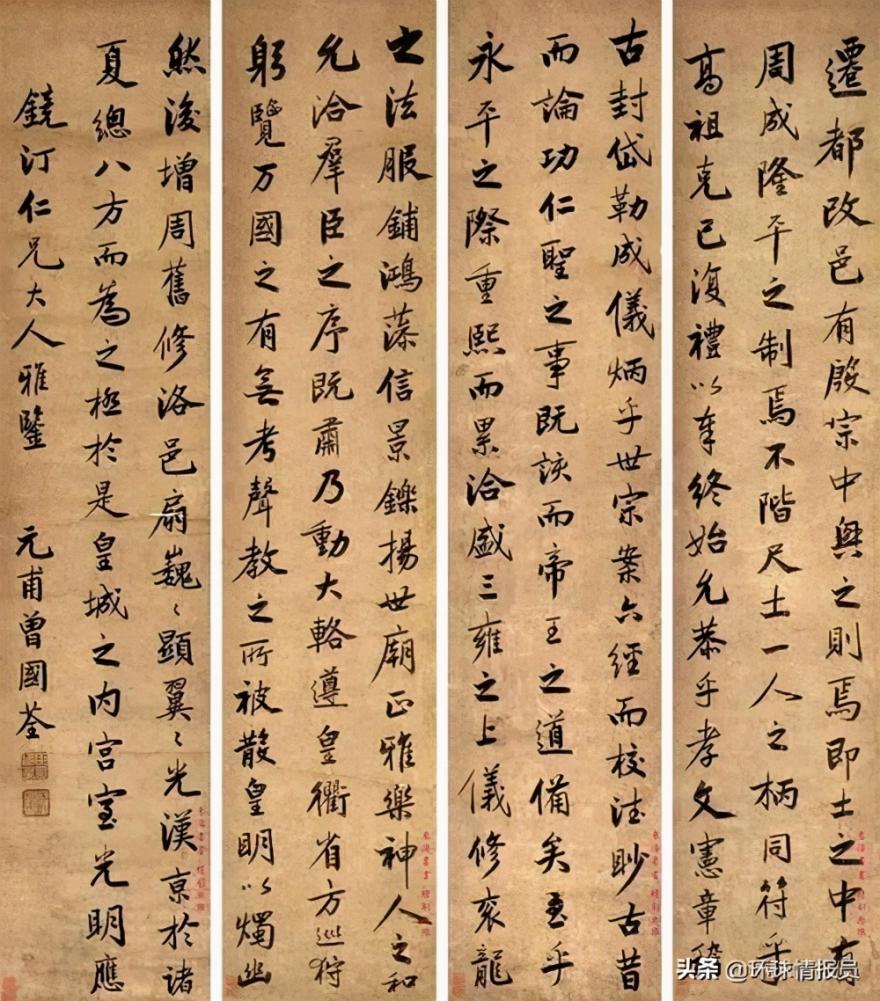 遷都改邑有殷宗中興之則焉即土之中有
周成隆平之制焉不階尺土一人之柄同符乎
高祖克己復禮以奉終始允恭乎孝文憲章稽
古封岱勒成儀炳乎世宗案六經而校德眇古昔
而論功仁聖之事既該而帝王之道備矣至乎
永平之際重熙而累洽盛三雍之上儀修衮龍
之法服鋪鴻藻信景鑠揚世廟正雅樂神人之和
允洽羣臣之序既肅乃動大輅遵皇衢省方巡狩
躬覽万國之有無考聲教之所被散皇明以燭幽
然後增周舊修洛邑扇巍〻顯翼〻光漢京於諸
夏總八方而為之極於是皇城之内宮室光明應
鏡汀仁兄大人雅鑒 元甫曾國荃
头条 @环球情报员